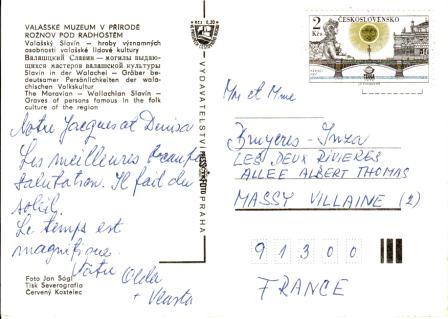 VALAŠSKÉ MUZEUM V PŘÍRODĚ
ROŽNOV POD RADHOSTĚM
Valašský Slavín — hroby významných
osobností valašské lidové kultury
Валашский Славин — могилы выдаю-
щихся мастеров валашской культуры
Slavin in der Walachei — Gräber be-
deutsamer Persönlichkeiten der wala-
chischen Volkskultur
The Moravian — Wallachian Slavín —
Graves of persons famous in the folk
culture of the region
Notre Jacques et Denisa
Les meilleures
salutation. Il fait du
soleil.
Le temps est
magnifique.
Votre Olda
+ Vlasta
Foto Jan Ságl
Tisk Severografia
Červený Kostelec
VYDAVATELSTVÍ PRAHA
2 Kčs
ČESKOSLOVENSKO
Mr et Mme
Bruyeres - Inza
LES DEUX RIVIERES
ALLEE ALBERT THOMAS
MASSY VILLAINE (2)
91300
FRANCE